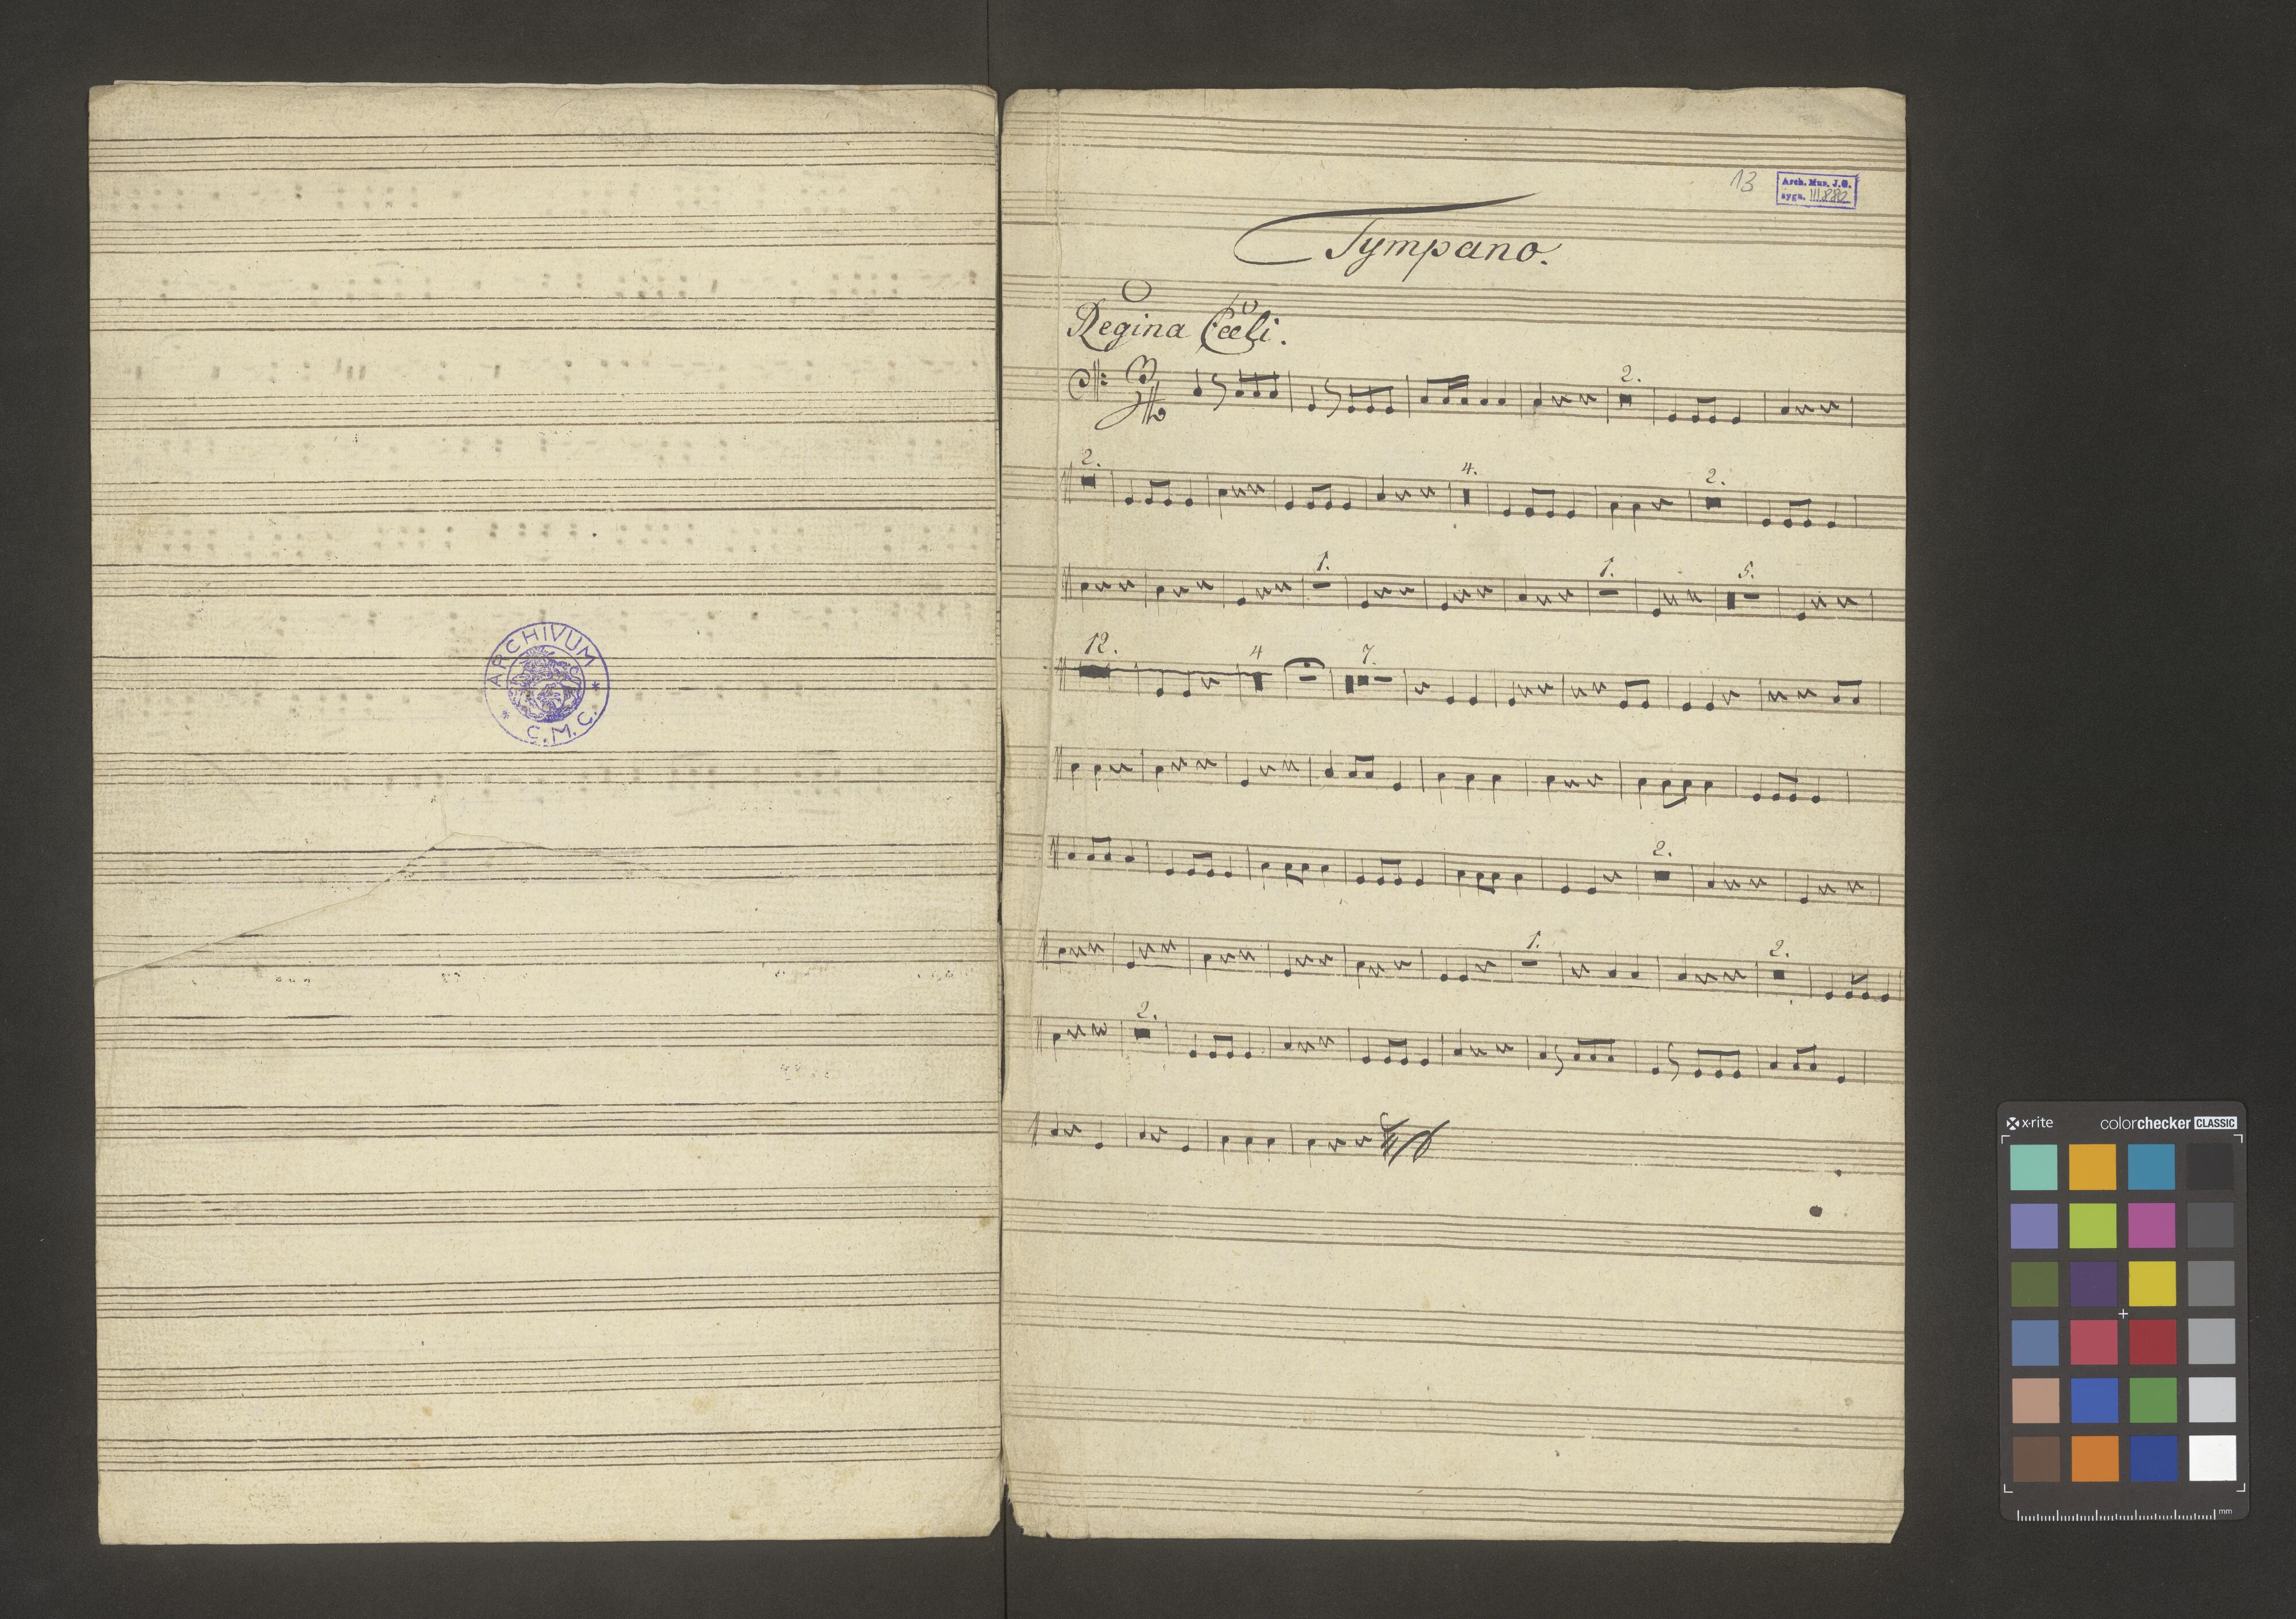 ARCHIVUM * C.M.C. *
13
Arch. Mus. J.G.
sygn. III.882
Tympano.
Regina Cœli.
2.
2.
4.
2.
1.
1.
5.
12.
4
7.
2.
1.
2.
2.
x-rite
colorchecker CLASSIC
mm